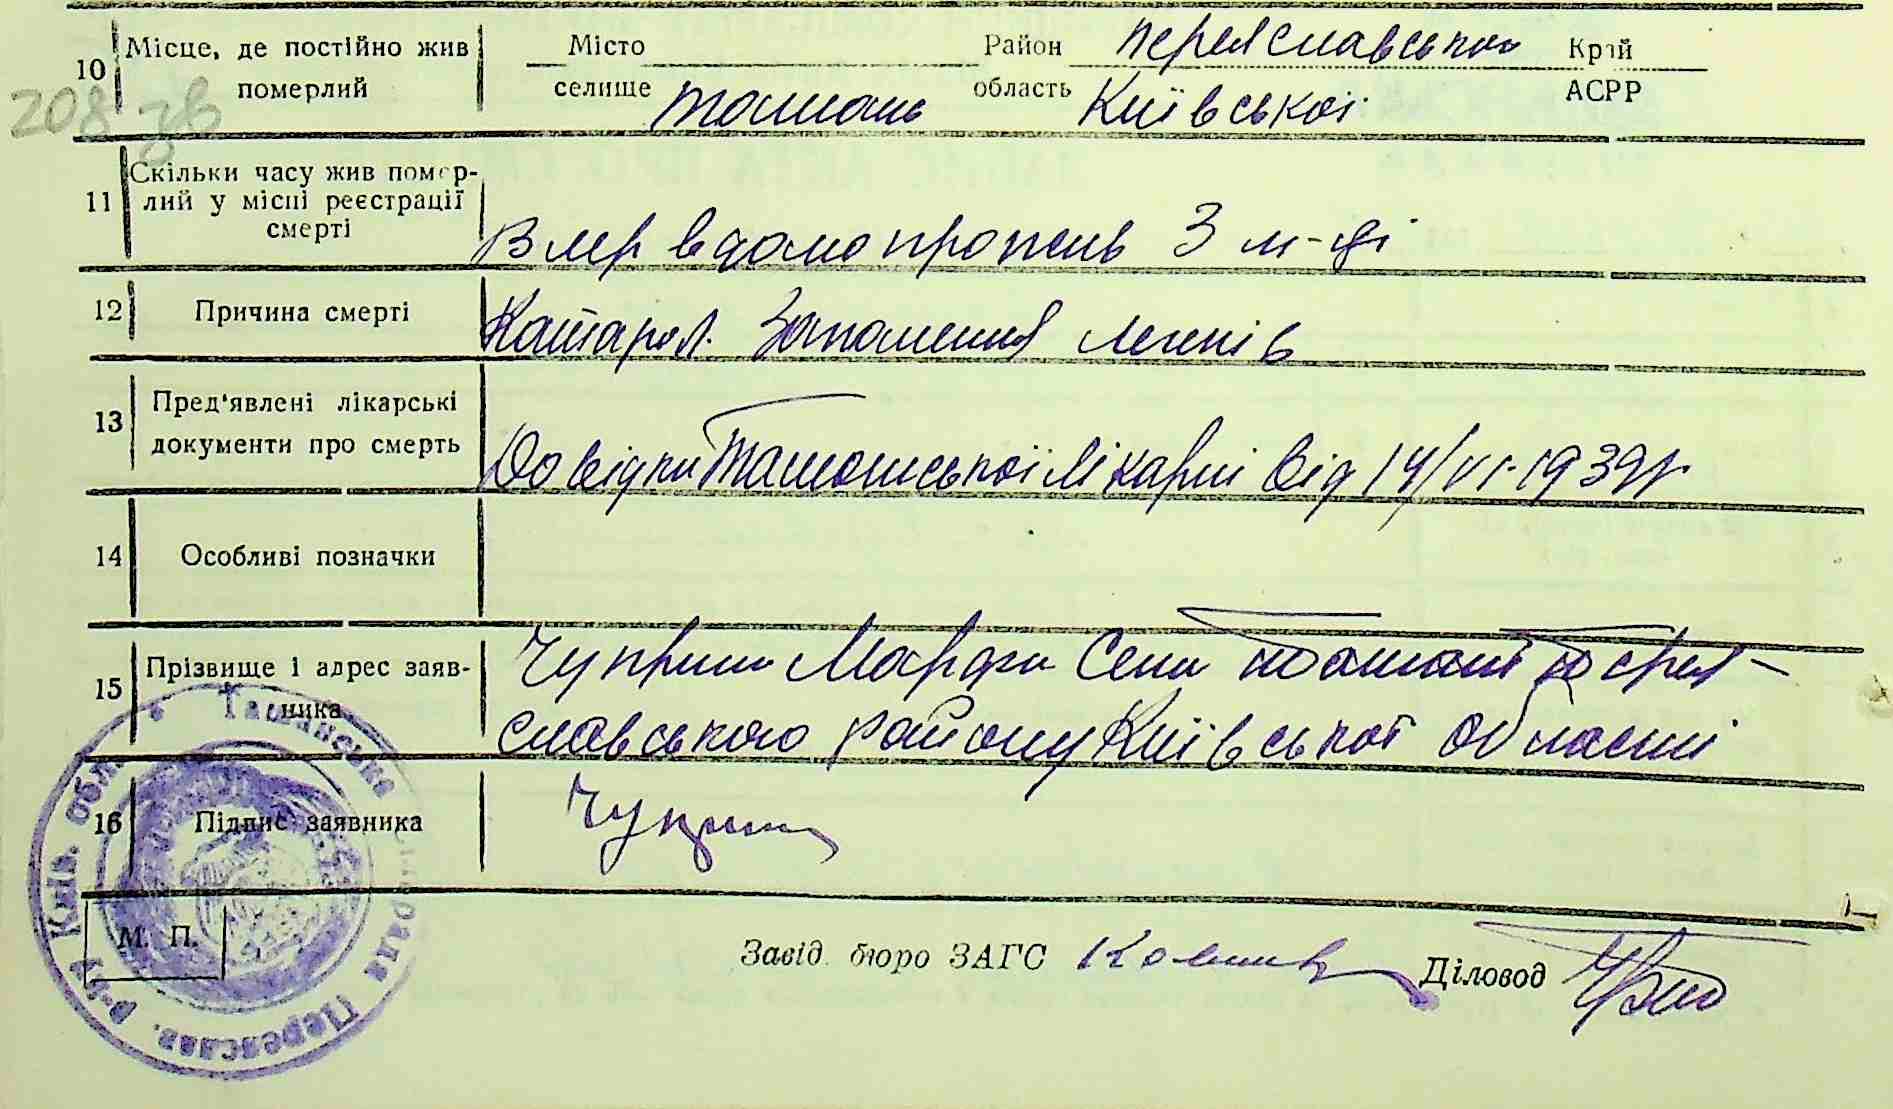 10 Місце, де постійно жив померлий
Місто селище Ташань Район Переяславського Край
область Київської АСРР
208 зв
11 Скільки часу жив помер-
лий у місці реєстрації
смерті
Вмер вдома прожив 3 м-ці
12 Причина смерті Катарал. Запалення легенів
13 Пред'явлені лікарські
документи про смерть
Довідки Ташанської лікарні від 14/VI-1939 р
14 Особливі позначки
15 Прізвище і адрес заяв-
ника
Чуприн Марфа Села Ташані Перея-
славського району Київської області
16 Підпис заявника Чуприн
М. П.
Завід. бюро ЗАГС Діловод
Ташанська сільрада Переяслав. р-ну Київ. обл.